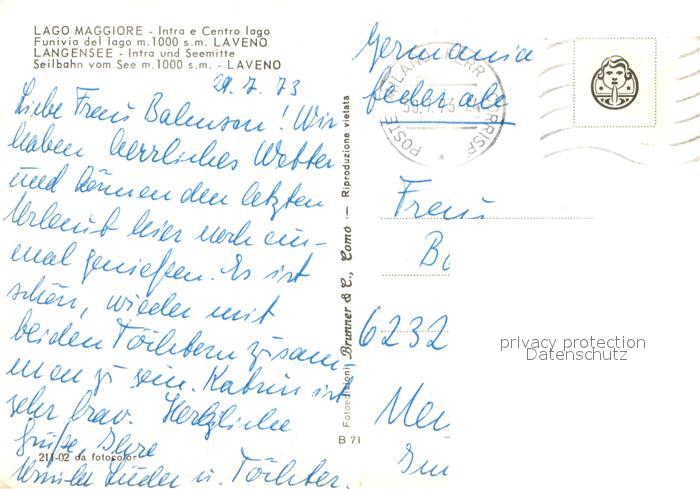 LAGO MAGGIORE - Intra e Centro lago
Funivia del lago m.1000 s.m. LAVENO
LANGENSEE - Intra und Seemitte
Seilbahn vom See m.1000 s.m. - LAVENO
29.7.73
Liebe Frau! Wir
haben herrliches Wetter
und können den letzten
Urlaub hier noch ein-
mal genießen. Es ist
schön, wieder mit
beiden Töchtern zusam-
men zu sein. Katrin ist
sehr brav. Herzliche
Grüße, Ihre
u. Töchter.
211-02 da fotocolor
Fotoedizioni Brunner & C., Como — Riproduzione vietata
B 71
Germania
federale
POSTE
CORRISP
Frau
6232
privacy protection
Datenschutz